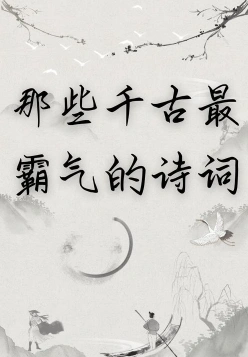 那些千古最
霸气的诗词